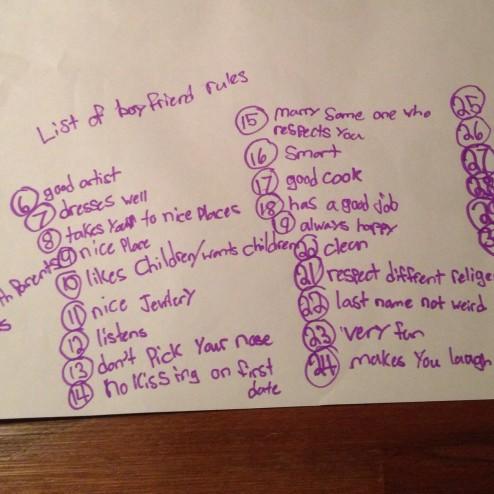 List of boyfriend rules
th Parents
s
6 good artist
7 dresses well
8 takes You to nice Places
9 nice Place
10 likes Children/wants children
11 nice Jewlery
12 listens
13 don't Pick Your nose
14 no Kissing on first
date
15 marry Some one who
respects You
16 Smart
17 good cook
18 has a good job
9 always happy
clean
21 respect diffrent relige
22 last name not weird
23 very fun
24 makes You laugh
25
26
27
28